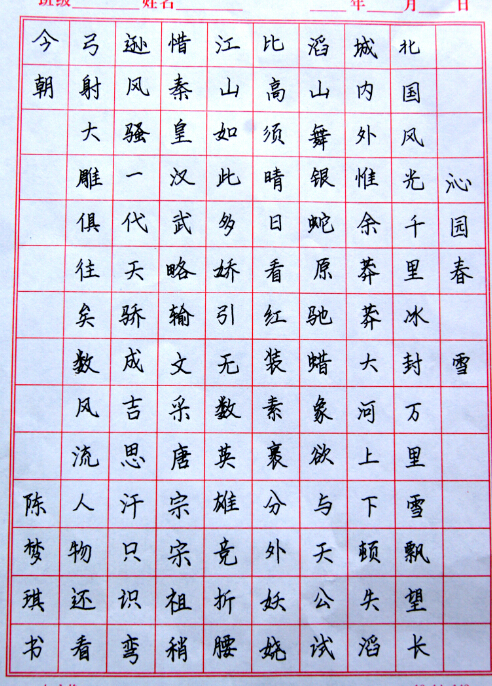 班级 姓名 年 月 日
沁园春 雪
北国风光千里冰封万里雪飘望长
城内外惟余莽莽大河上下顿失滔
滔山舞银蛇原驰蜡象欲与天公试
比高须晴日看红装素裹分外妖娆
江山如此多娇引无数英雄竞折腰
惜秦皇汉武略输文采唐宗宗祖稍
逊风骚一代天骄成吉思汗只识弯
弓射大雕俱往矣数风流人物还看
今朝 陈梦琪书